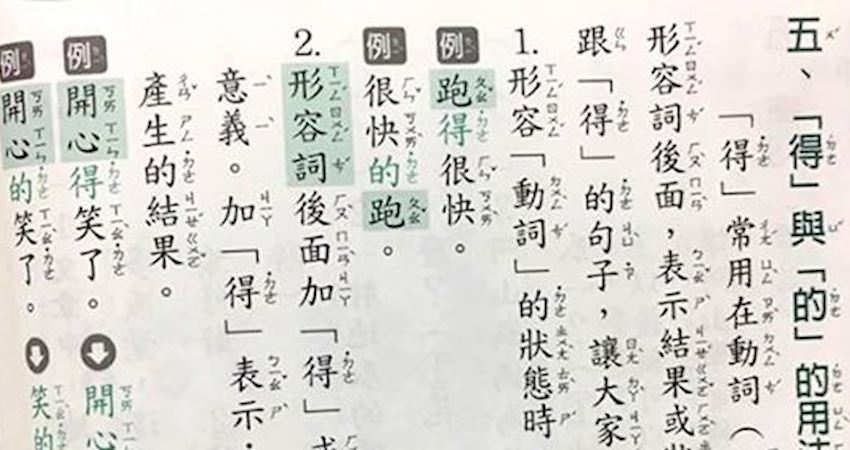 五、「得」與「的」的用法
「得」常用在動詞（
形容詞後面，表示結果或狀
跟「得」的句子，讓大家
1. 形容「動詞」的狀態時
例 跑得很快。
例 很快的跑。
2. 形容詞後面加「得」或
意義。加「得」表示：
產生的結果。
例 開心得笑了。 開心
例 開心的笑了。 笑的